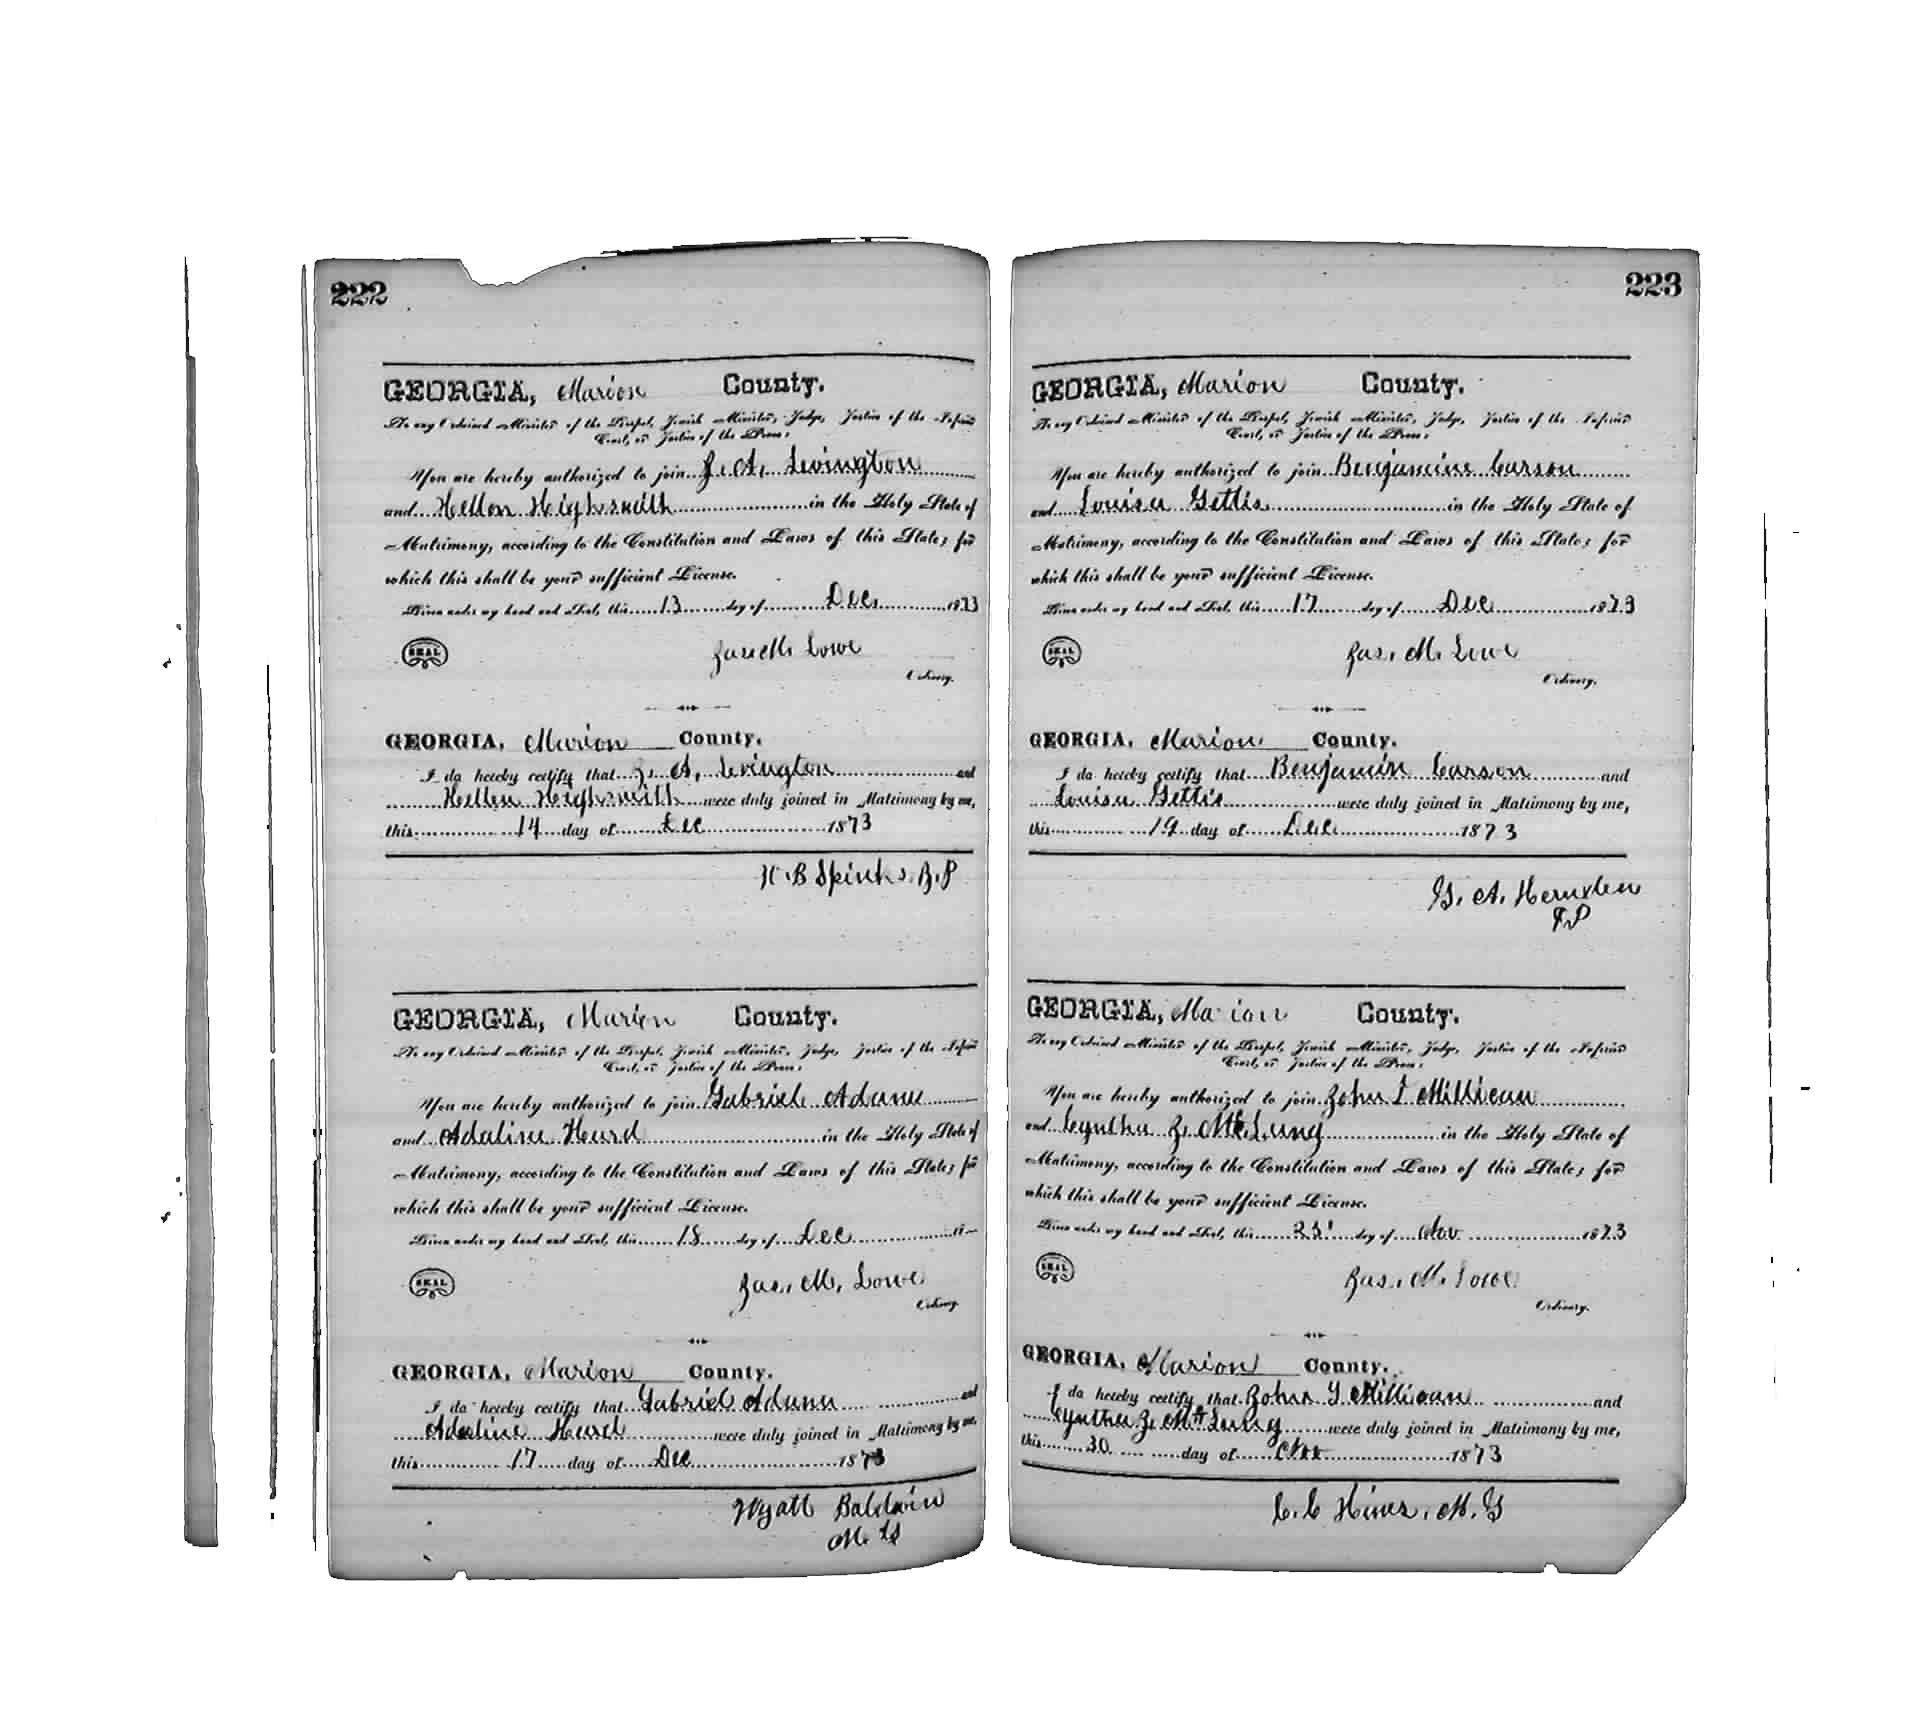 222
GEORGIA, Marion County.
To any Ordained Minister of the Gospel, Jewish Minister, Judge, Justice of the Inferior
Court, or Justice of the Peace:
You are hereby authorized to join J. A. Levington
and Hellon Highsmith in the Holy State of
Matrimony, according to the Constitution and Laws of this State; for
which this shall be your sufficient License.
Given under my hand and Seal, this 13 day of Dec. 1873
SEAL
Jas M. Lowe
Ordinary.
GEORGIA, Marion County.
I do hereby certify that J. A. Levington and
Hellen Highsmith were duly joined in Matrimony by me,
this 14 day of Dec 1873
H. B Spinks. J. P
GEORGIA, Marion County.
To any Ordained Minister of the Gospel, Jewish Minister, Judge, Justice of the Inferior
Court, or Justice of the Peace:
You are hereby authorized to join Gabriel Adams
and Adaline Heard in the Holy State of
Matrimony, according to the Constitution and Laws of this State; for
which this shall be your sufficient License.
Given under my hand and Seal, this 18 day of Dec 18
SEAL
Jas. M. Lowe
Ordinary.
GEORGIA, Marion County.
I do hereby certify that Gabriel Adams and
Adaline Heard were duly joined in Matrimony by me,
this 17 day of Dec 1873
Wyatt Baldwin
M. G
223
GEORGIA, Marion County.
To any Ordained Minister of the Gospel, Jewish Minister, Judge, Justice of the Inferior
Court, or Justice of the Peace:
You are hereby authorized to join Benjamine Carson
and Louisa Gettis in the Holy State of
Matrimony, according to the Constitution and Laws of this State; for
which this shall be your sufficient License.
Given under my hand and Seal, this 17 day of Dec 1873
SEAL
Jas. M. Lowe
Ordinary.
GEORGIA, Marion County.
I do hereby certify that Benjamin Carson and
Louisa Gettis were duly joined in Matrimony by me,
this 19 day of Dec 1873
G. A. Hernden
J P
GEORGIA, Marion County.
To any Ordained Minister of the Gospel, Jewish Minister, Judge, Justice of the Inferior
Court, or Justice of the Peace:
You are hereby authorized to join John T Millican
and Cyntha J. McLung in the Holy State of
Matrimony, according to the Constitution and Laws of this State; for
which this shall be your sufficient License.
Given under my hand and Seal, this day of Nov 1873
SEAL
Jas. M. Lowe
Ordinary.
GEORGIA, Marion County.
I do hereby certify that John Millican and
Cyntha J. McLung were duly joined in Matrimony by me,
this 30 day of Nov 1873
C. C Hines, M. G